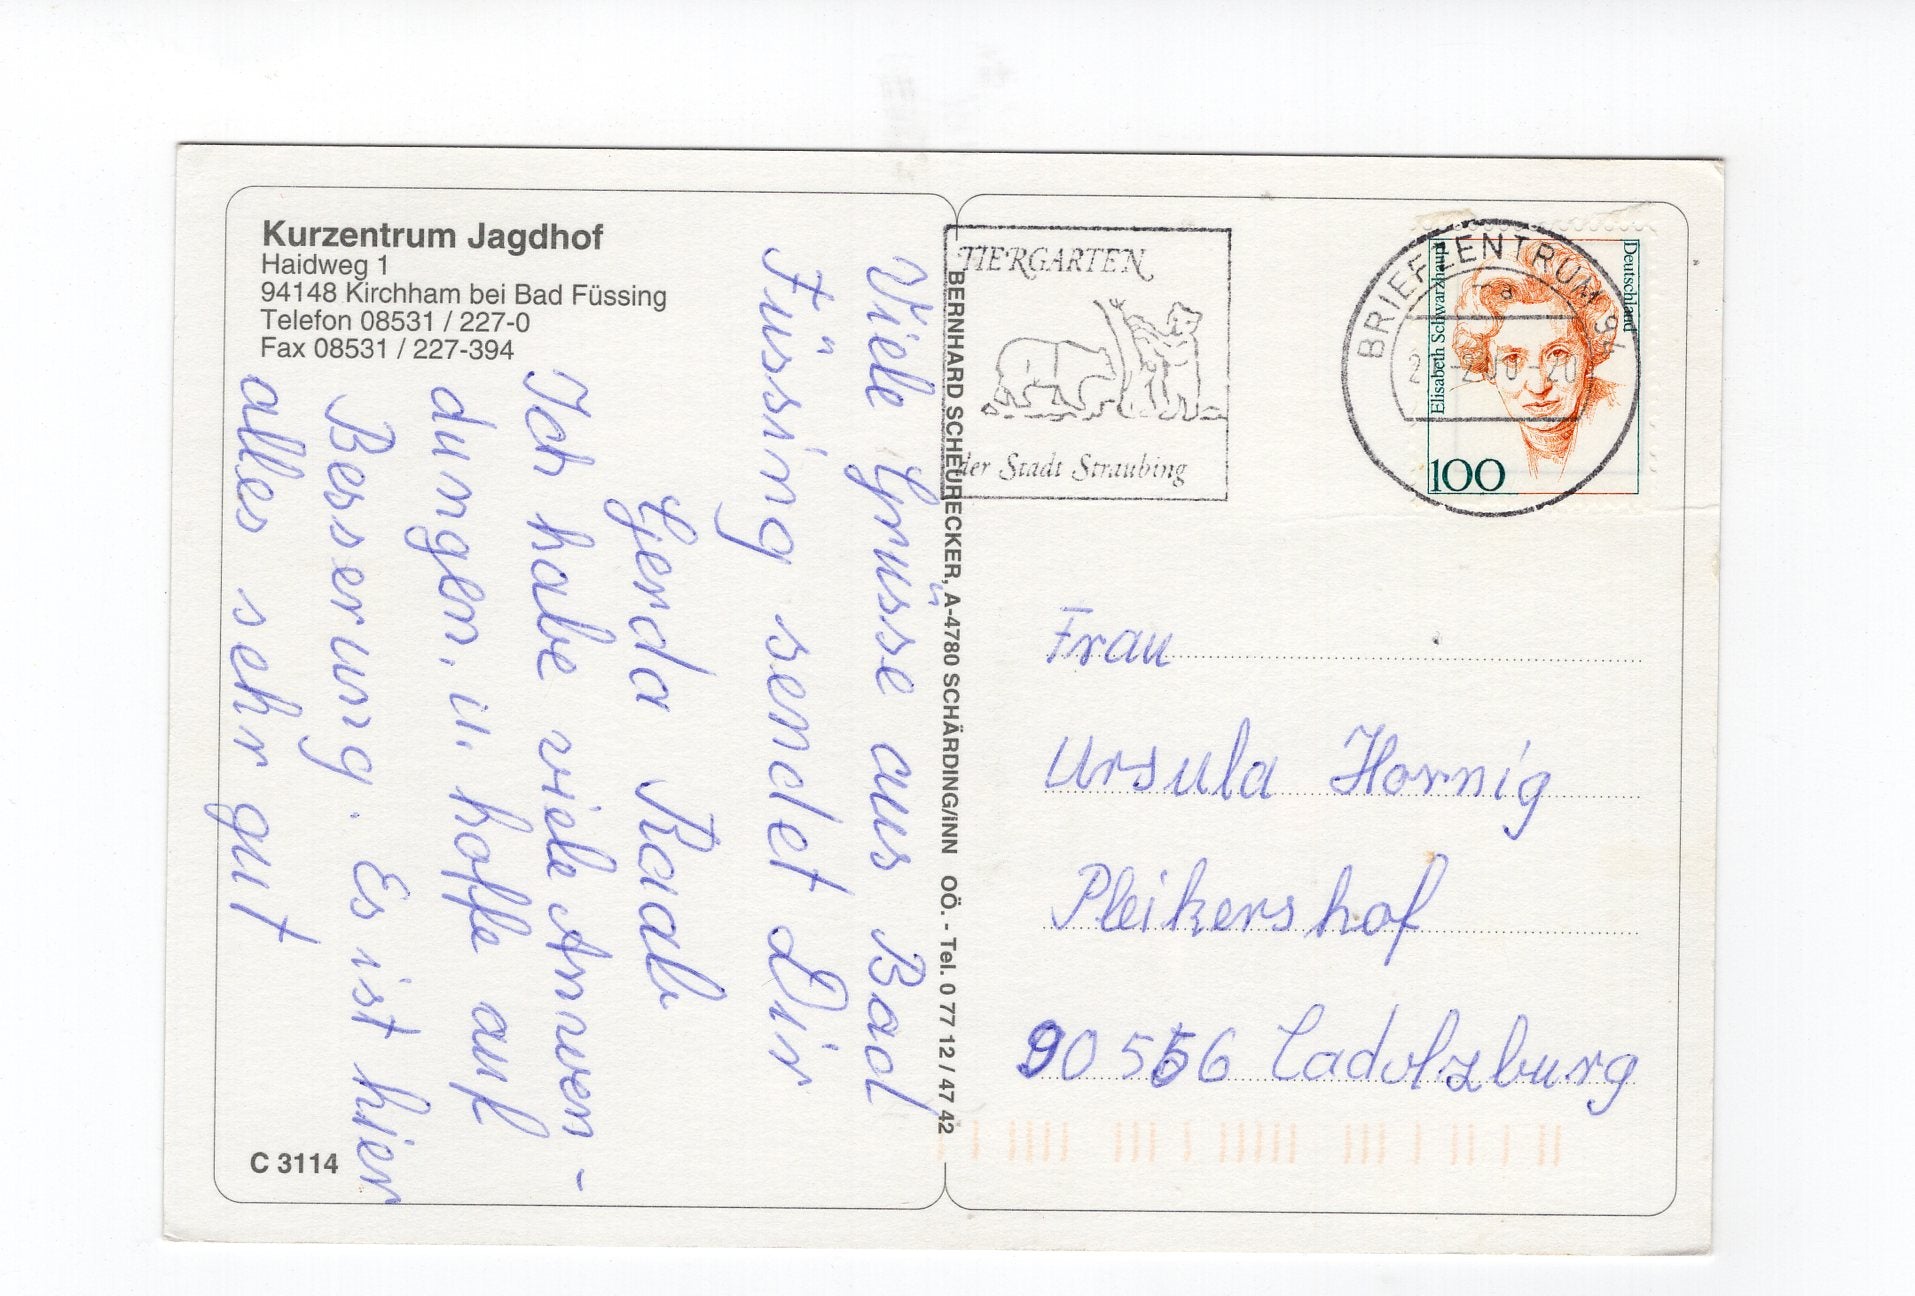 Kurzentrum Jagdhof
Haidweg 1
94148 Kirchham bei Bad Füssing
Telefon 08531 / 227-0
Fax 08531 / 227-394
Viele Grüsse aus Bad
Füssing sendet Dir
Gerda Raab
Ich habe viele Anwen-
dungen, u. hoffe auf
Besserung. Es ist hier
alles sehr gut
C 3114
BERNHARD SCHEURECKER, A-4780 SCHÄRDING/INN OÖ. - Tel. 0 77 12 / 47 42
TIERGARTEN
der Stadt Straubing
BRIEFZENTRUM 94
a
Deutschland
Elisabeth Schwarzhaupt
100
Frau
Ursula Hornig
Pleikershof
90556 Cadolzburg